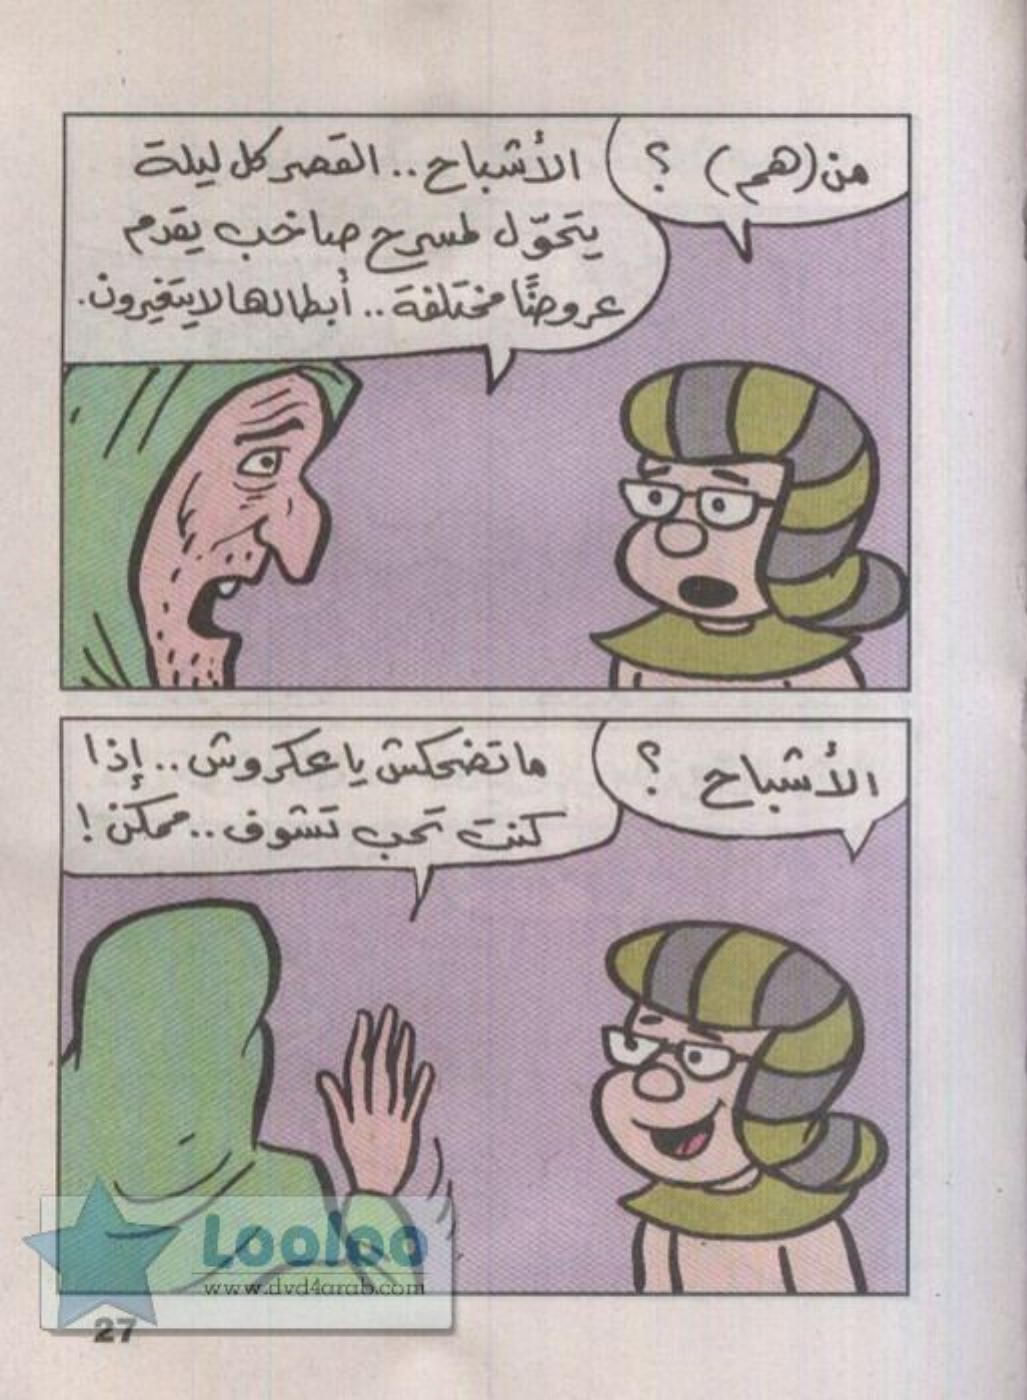 من (هم) ؟
الأشباح .. القصر كل ليلة
يتحوّل لمسرح صاخب يقدم
عروضًا مختلفة .. أبطالها لايتغيرون.
الأشباح ؟
ماتضحكش ياعكروش .. إذا
كنت تحب تشوف .. ممكن !
Looloo
www.dvd4arab.com
27